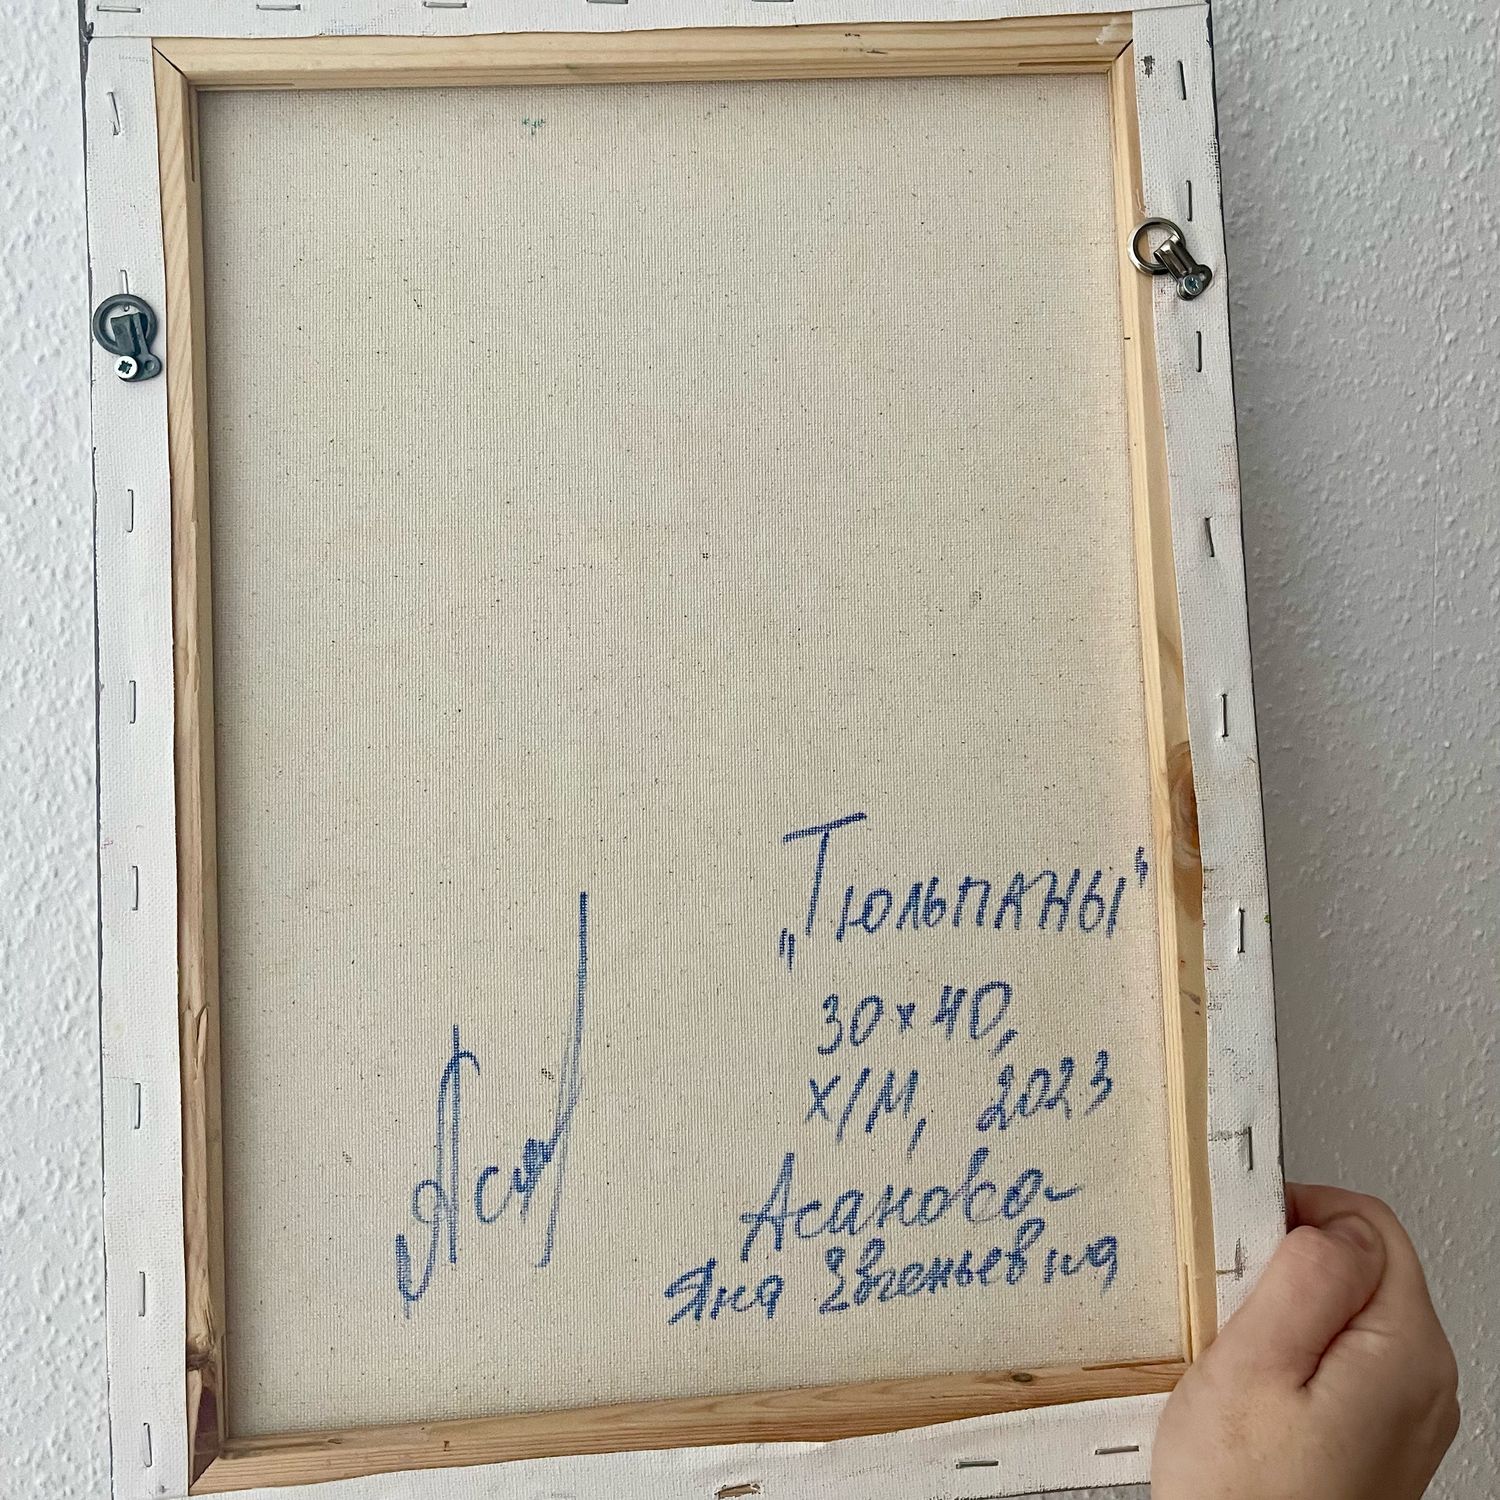 „Тюльпаны“
30×40,
х/м, 2023
Асанова
Яна Евгеньевна